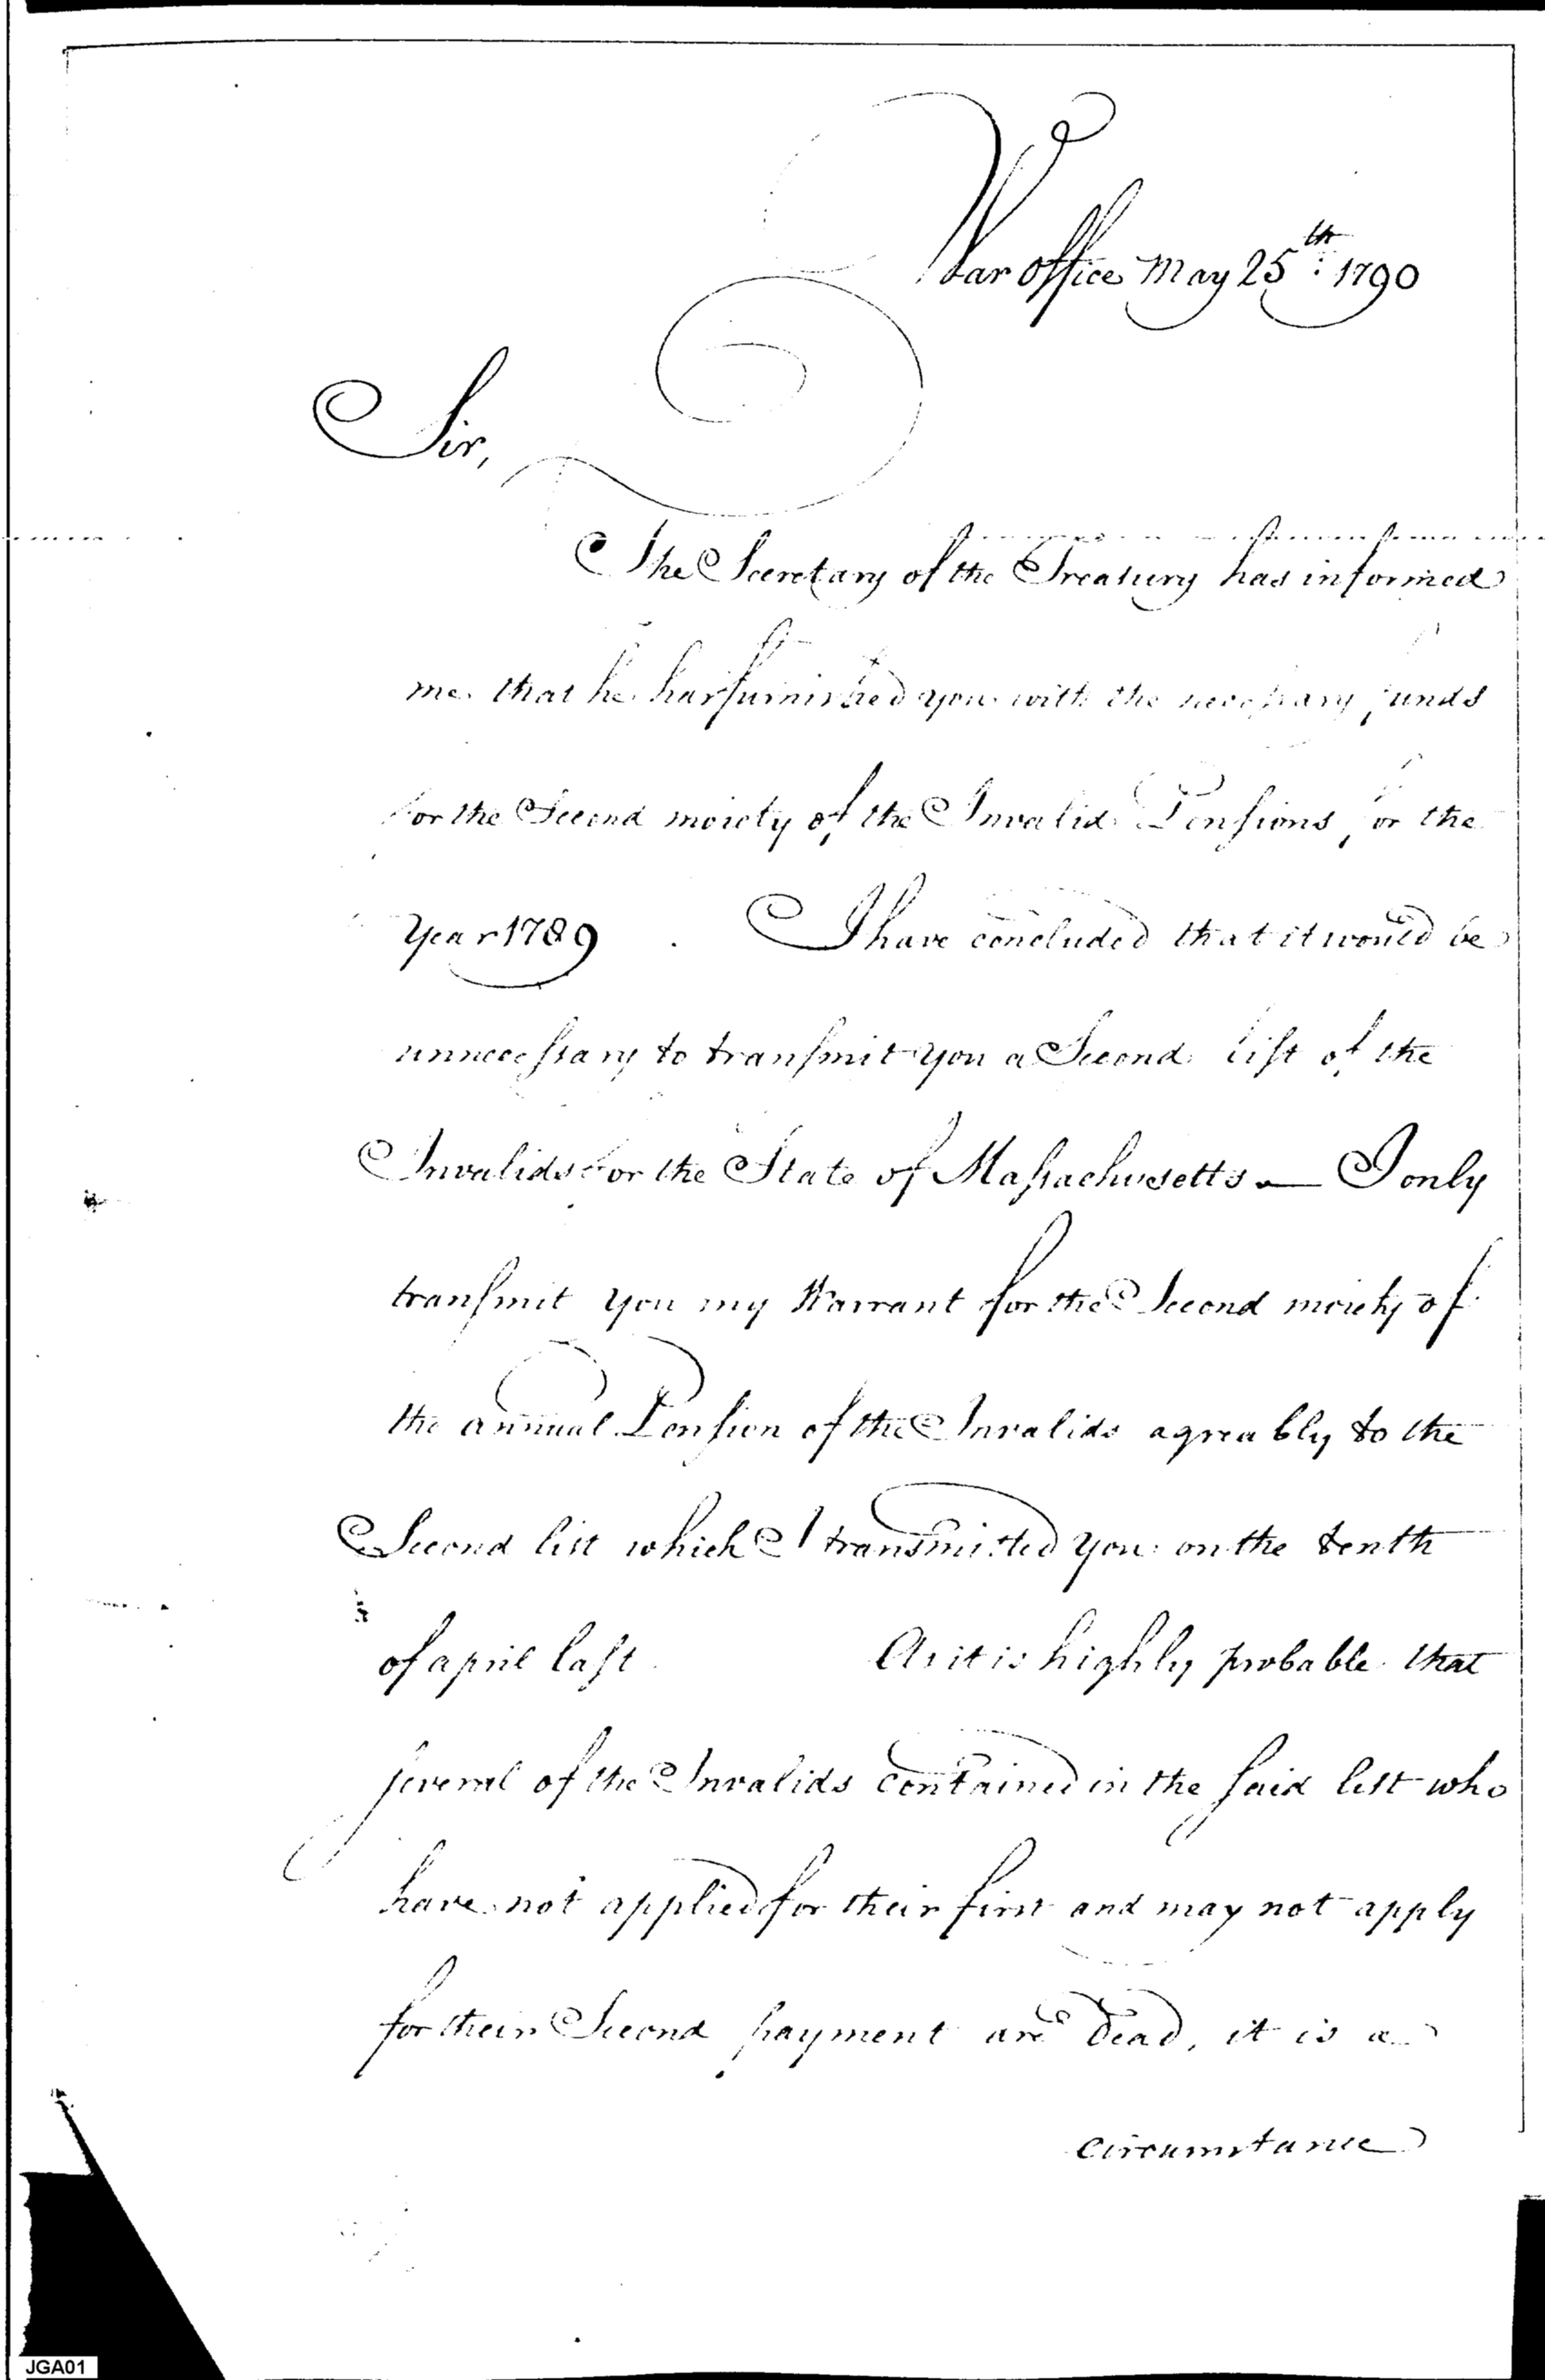 War office May 25th: 1790
Sir,
The Secretary of the Treasury has informed
me that he has furnished you with the necessary funds
for the Second moiety of the Invalid Pensions, for the
Year 1789. I have concluded that it would be
unnecessary to transmit you a Second list of the
Invalids for the State of Massachusetts — I only
transmit you my Warrant for the Second moiety of
the annual Pension of the Invalids agreably to the
Second list which I transmitted you on the tenth
of april last. As it is highly probable that
several of the Invalids contained in the said list who
have not applied for their first and may not apply
for their Second payment are dead, it is a
circumstance
JGA01